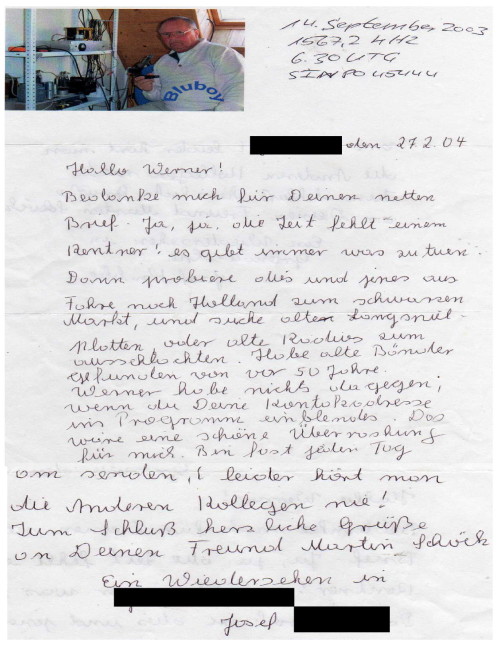 Bluboy
14. September 2003
1567,2 kHz
6.30 UTG
SINPO 45444
den 27.2.04
Hallo Werner!
Bedanke mich für Deinen netten
Brief. Ja, ja. die Zeit fehlt einem
Rentner! es gibt immer was zu tuen.
Dann probiere dies und jenes aus
Fahre nach Holland zum schwarzen
Markt, und suche alten Langspiel-
platten, oder alte Radios zum
ausschlachten. Habe alte Bänder
gefunden von vor 50 Jahre.
Werner habe nichts dagegen,
wenn du Deine Kontaktadresse
ins Programm einblendes. Das
wäre eine schöne Überraschung
für mich. Bin fast jeden Tag
am senden, leider hört man
die Anderen Kollegen nie!
Zum Schluß herzliche Grüße
an Deinen Freund Martin Schöck
Ein Wiedersehen in
Josef